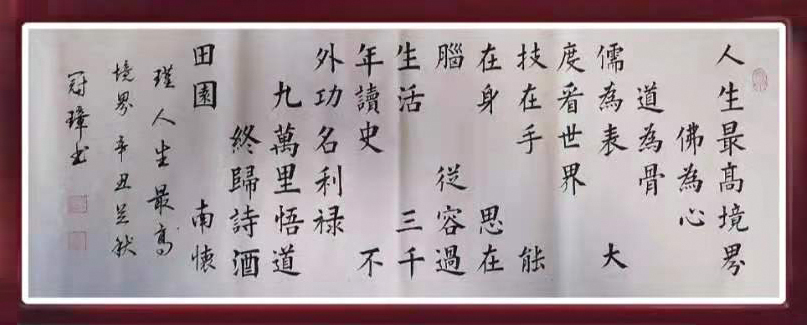 人生最髙境界
佛為心
道為骨
儒為表 大
度看世界
技在手 能
在身 思在
腦 從容過
生活 三千
年讀史 不
外功名利禄
九萬里悟道
終歸詩酒
田園 南懷
瑾人生最高
境界辛丑兰秋
冠璋书